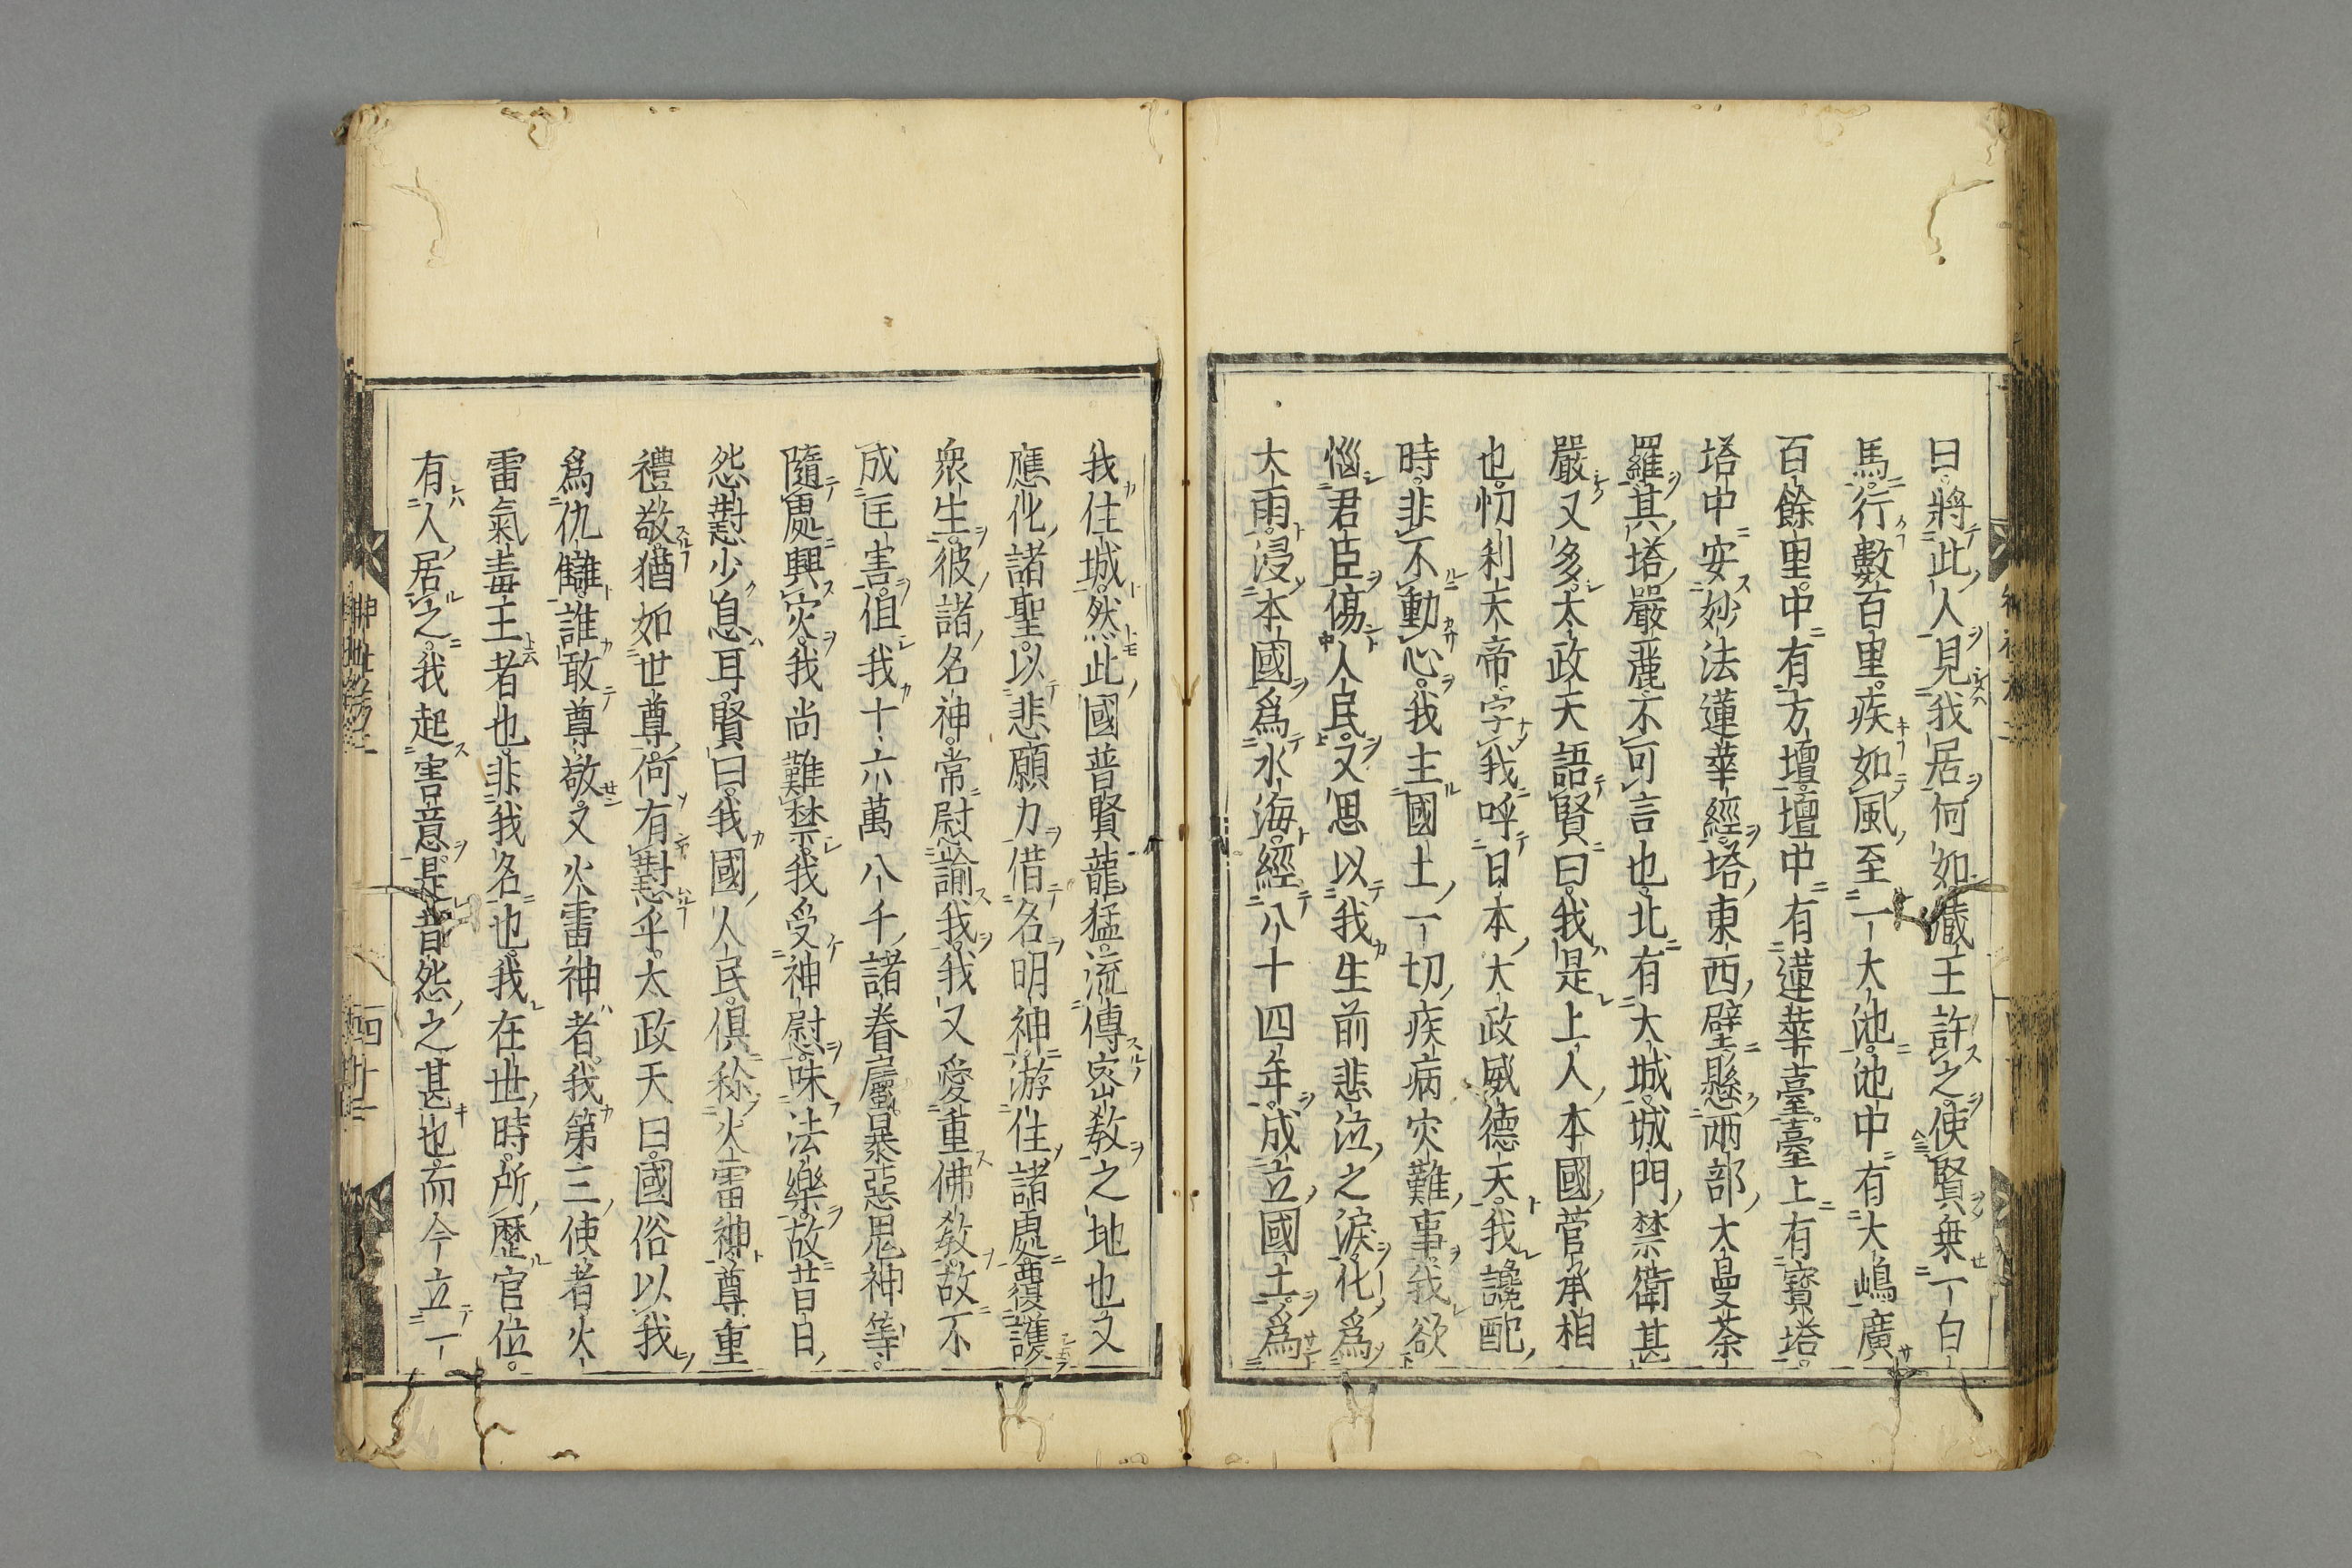 曰。將此人見我居何如。藏王許之。使賢乗一白
馬。行數百里。疾如風。至一大池。池中有大嶋。廣
百餘里。中有方壇。壇中有蓮華臺。臺上有寶塔。
塔中安妙法蓮華經。塔東西壁懸兩部大曼荼
羅。其塔嚴麗不可言也。北有大城。城門禁衛甚
嚴。又多太政天語賢曰。我是上人本國菅丞相
也。忉利天帝字我呼日本大政威德天。我讒配
時。非不動心。我主國土一切疾病灾難事。我欲
惱君臣傷人民。又思以我生前悲泣之淚化爲
大雨。浸本國爲水海。經八十四年。成立國土。爲
我住城。然此國普賢龍猛。流傳密教之地也。又
應化諸聖。以悲願力借名明神。游住諸處。覆護
衆生。彼諸名神。常慰諭我。我又愛重佛教。故不
成巨害。但我十六萬八千諸眷屬。暴惡鬼神等。
隨處興灾。我尚難禁。我受神慰。味法樂。故昔日
怨懟少息耳。賢曰。我國人民。俱称火雷神。尊重
禮敬。猶如世尊。何有懟乎。太政天曰。國俗以我
爲仇讎。誰敢尊敬。又火雷神者。我第三使者火
雷氣毒王者也。非我名也。我在世時。所歷官位。
有人居之。我起害意。是昔怨之甚也。而今立一